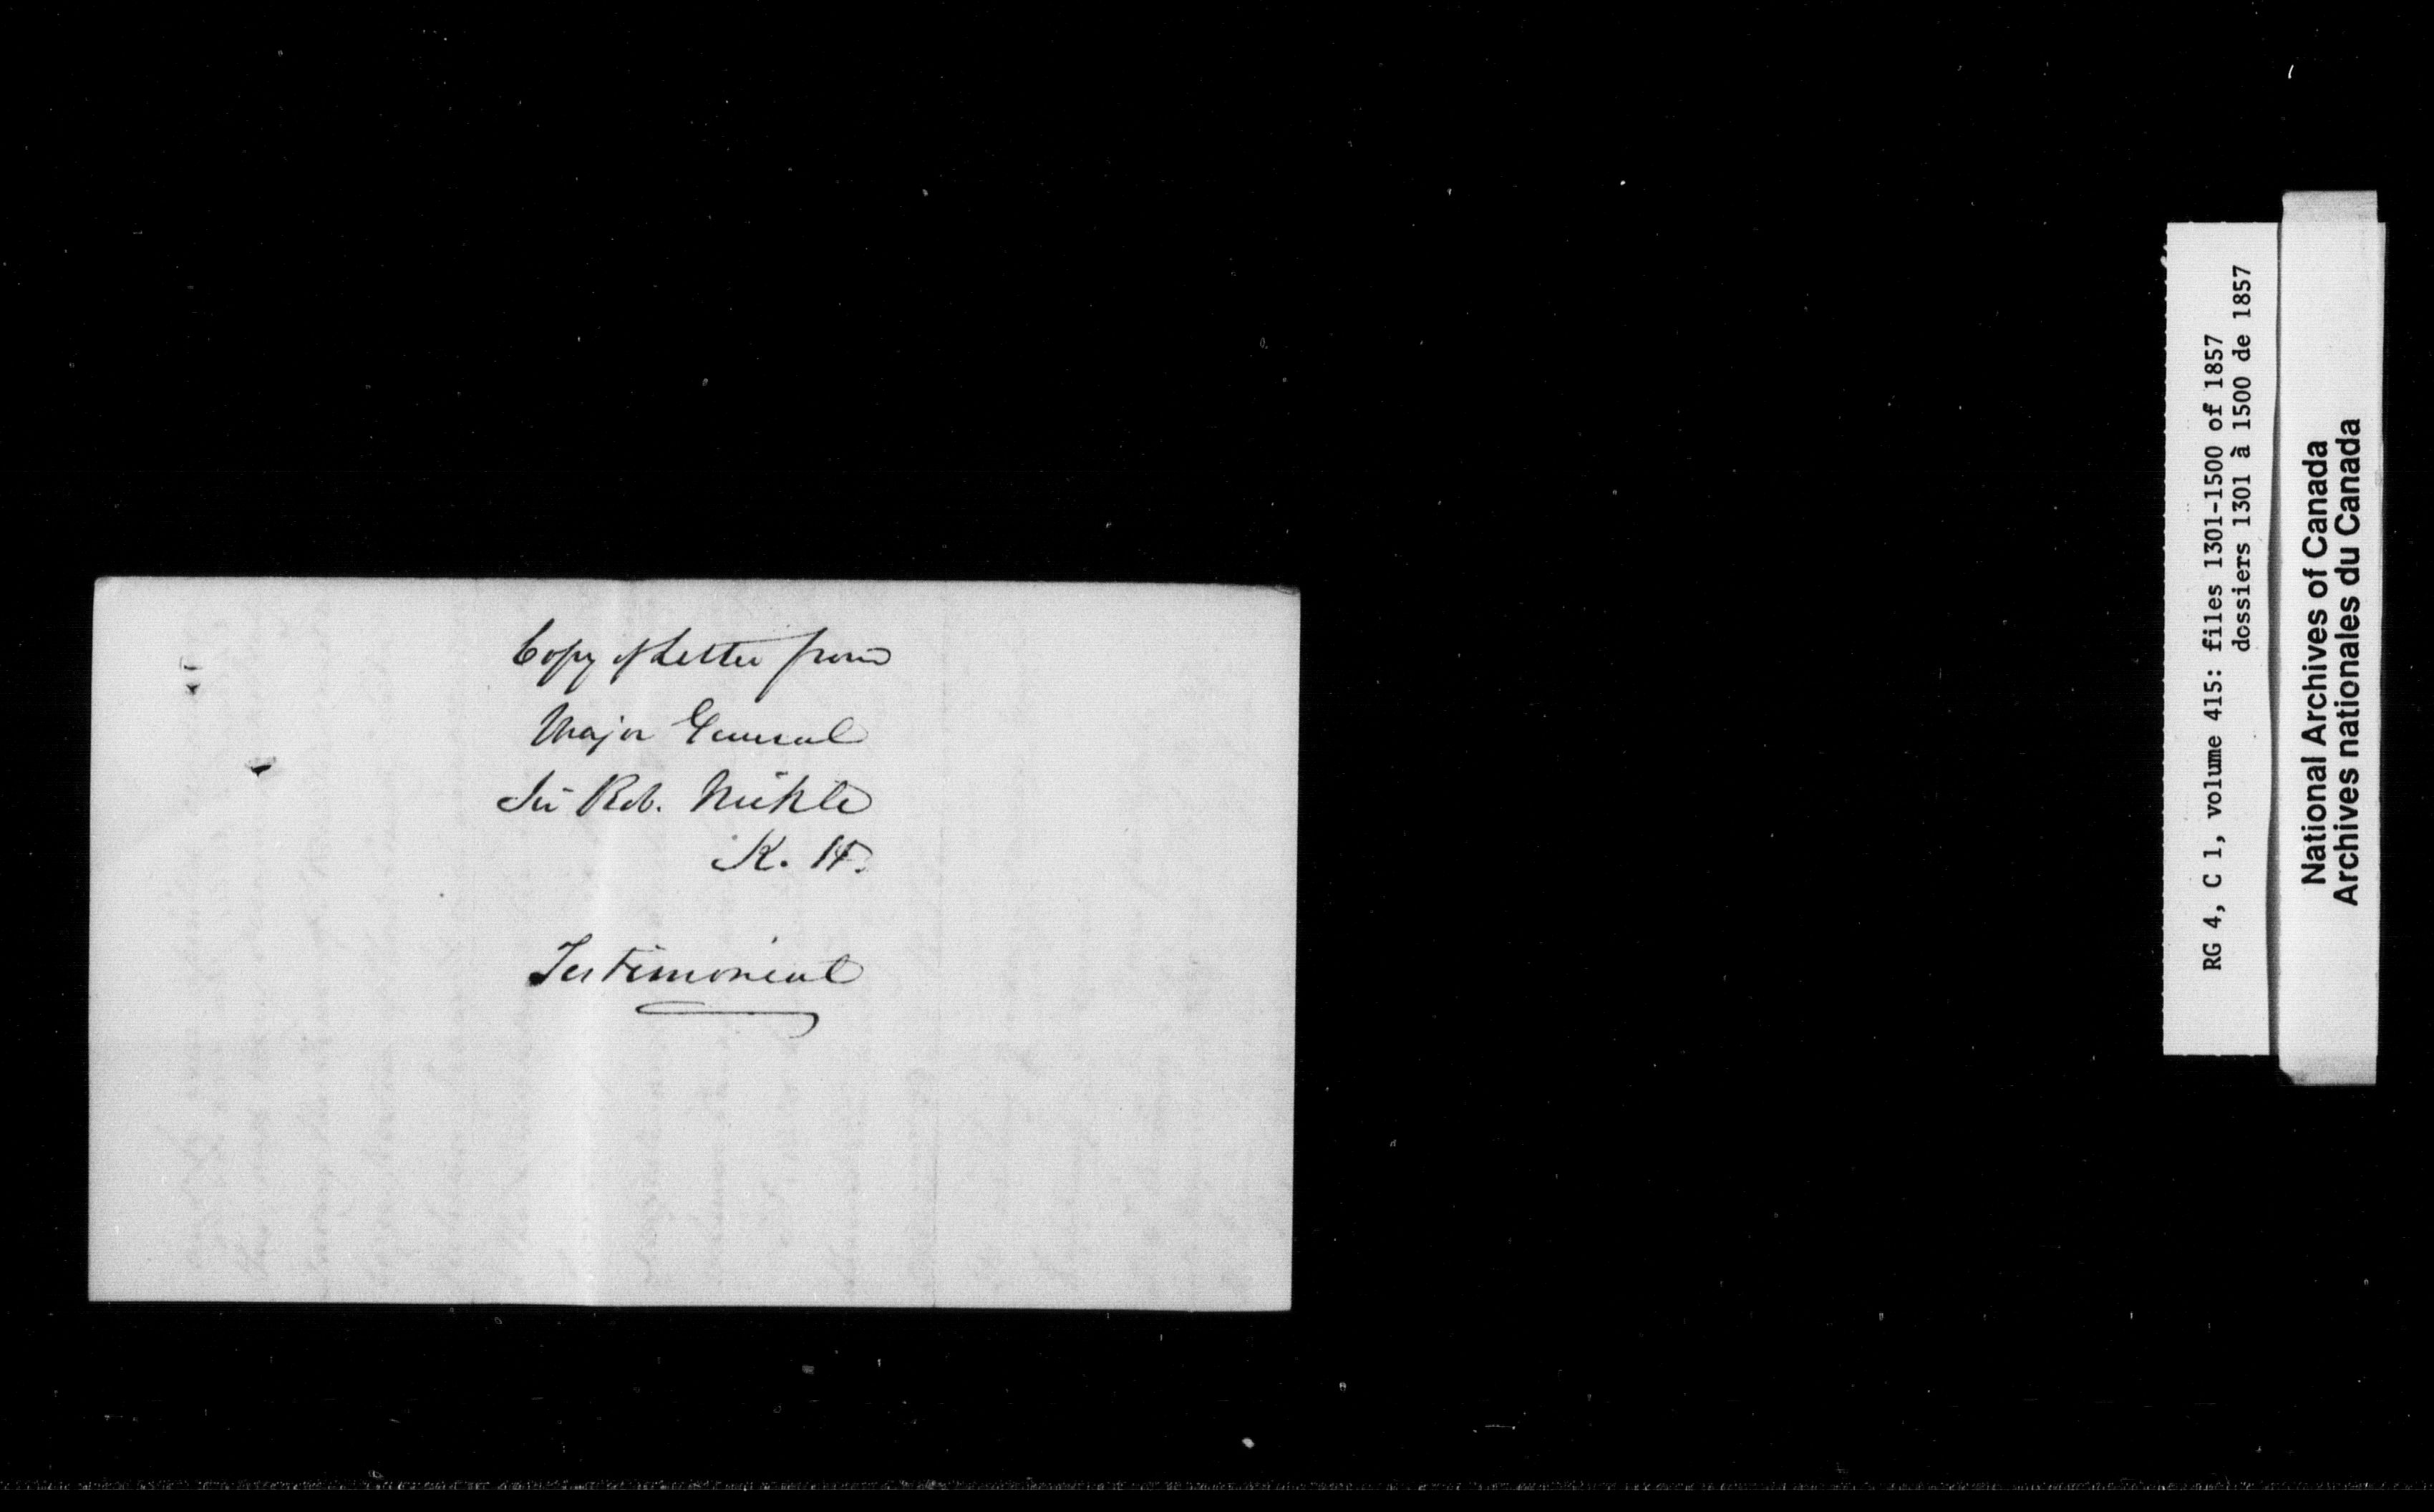 Copy of Letter from
Major General
Sir Rob. Nickle
K. H.
Testimonial
RG 4, C 1, volume 415: files 1301-1500 of 1857
dossiers 1301 à 1500 de 1857
National Archives of Canada
Archives nationales du Canada